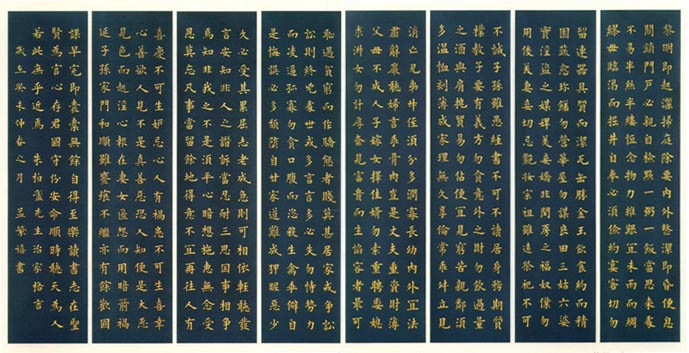 黎明即起灑掃庭除要內外整潔即昏便息
關鎖門戶必親自檢點一粥一飯當思來處
不易半絲半縷恒念物力維艱宜未雨而綢
繆毋臨渴而掘井自奉必須儉約宴客切勿
留連器具質而潔瓦缶勝金玉飲食約而精
園蔬愈珍饈勿營華屋勿謀良田三姑六婆
實淫盜之媒婢美妾嬌非閨房之福奴僕勿
用俊美妻妾切忌艷妝宗祖雖遠祭祀不可
不誠子孫雖愚經書不可不讀居身務期質
樸教子要有義方勿貪意外之財勿飲過量
之酒與肩挑貿易勿佔便宜見窮苦親鄰須
多溫恤刻薄成家理無久享倫常乖舛立見
消亡兄弟叔侄須分多潤寡長幼內外宜法
肅辭嚴聽婦言乖骨肉豈是丈夫重資財薄
父母不成人子嫁女擇佳婿勿索重聘娶媳
求淑女勿計厚奩見富貴而生諂容者最可
恥遇貧窮而作驕態者賤莫甚居家戒爭訟
訟則終凶處世戒多言言多必失勿恃勢力
而凌逼孤寡勿貪口腹而恣殺生禽乖僻自
是悔誤必多頹惰自甘家道難成狎暱惡少
久必受其累屈志老成急則可相依輕聽發
言安知非人之譖訴當忍耐三思因事相爭
焉知非我之不是須平心暗想施惠無念受
恩莫忘凡事當留餘地得意不宜再往人有
喜慶不可生妒忌心人有禍患不可生喜幸
心善欲人見不是真善惡恐人知便是大惡
見色而起淫心報在妻女匿怨而用暗箭禍
延子孫家門和順雖饔飧不繼亦有餘歡國
課早完即囊橐無餘自得至樂讀書志在聖
賢為官心存君國守份安命順時聽天為人
若此庶乎近焉 朱柏廬先生治家格言
歲在癸未仲春之月 孟繁禧書